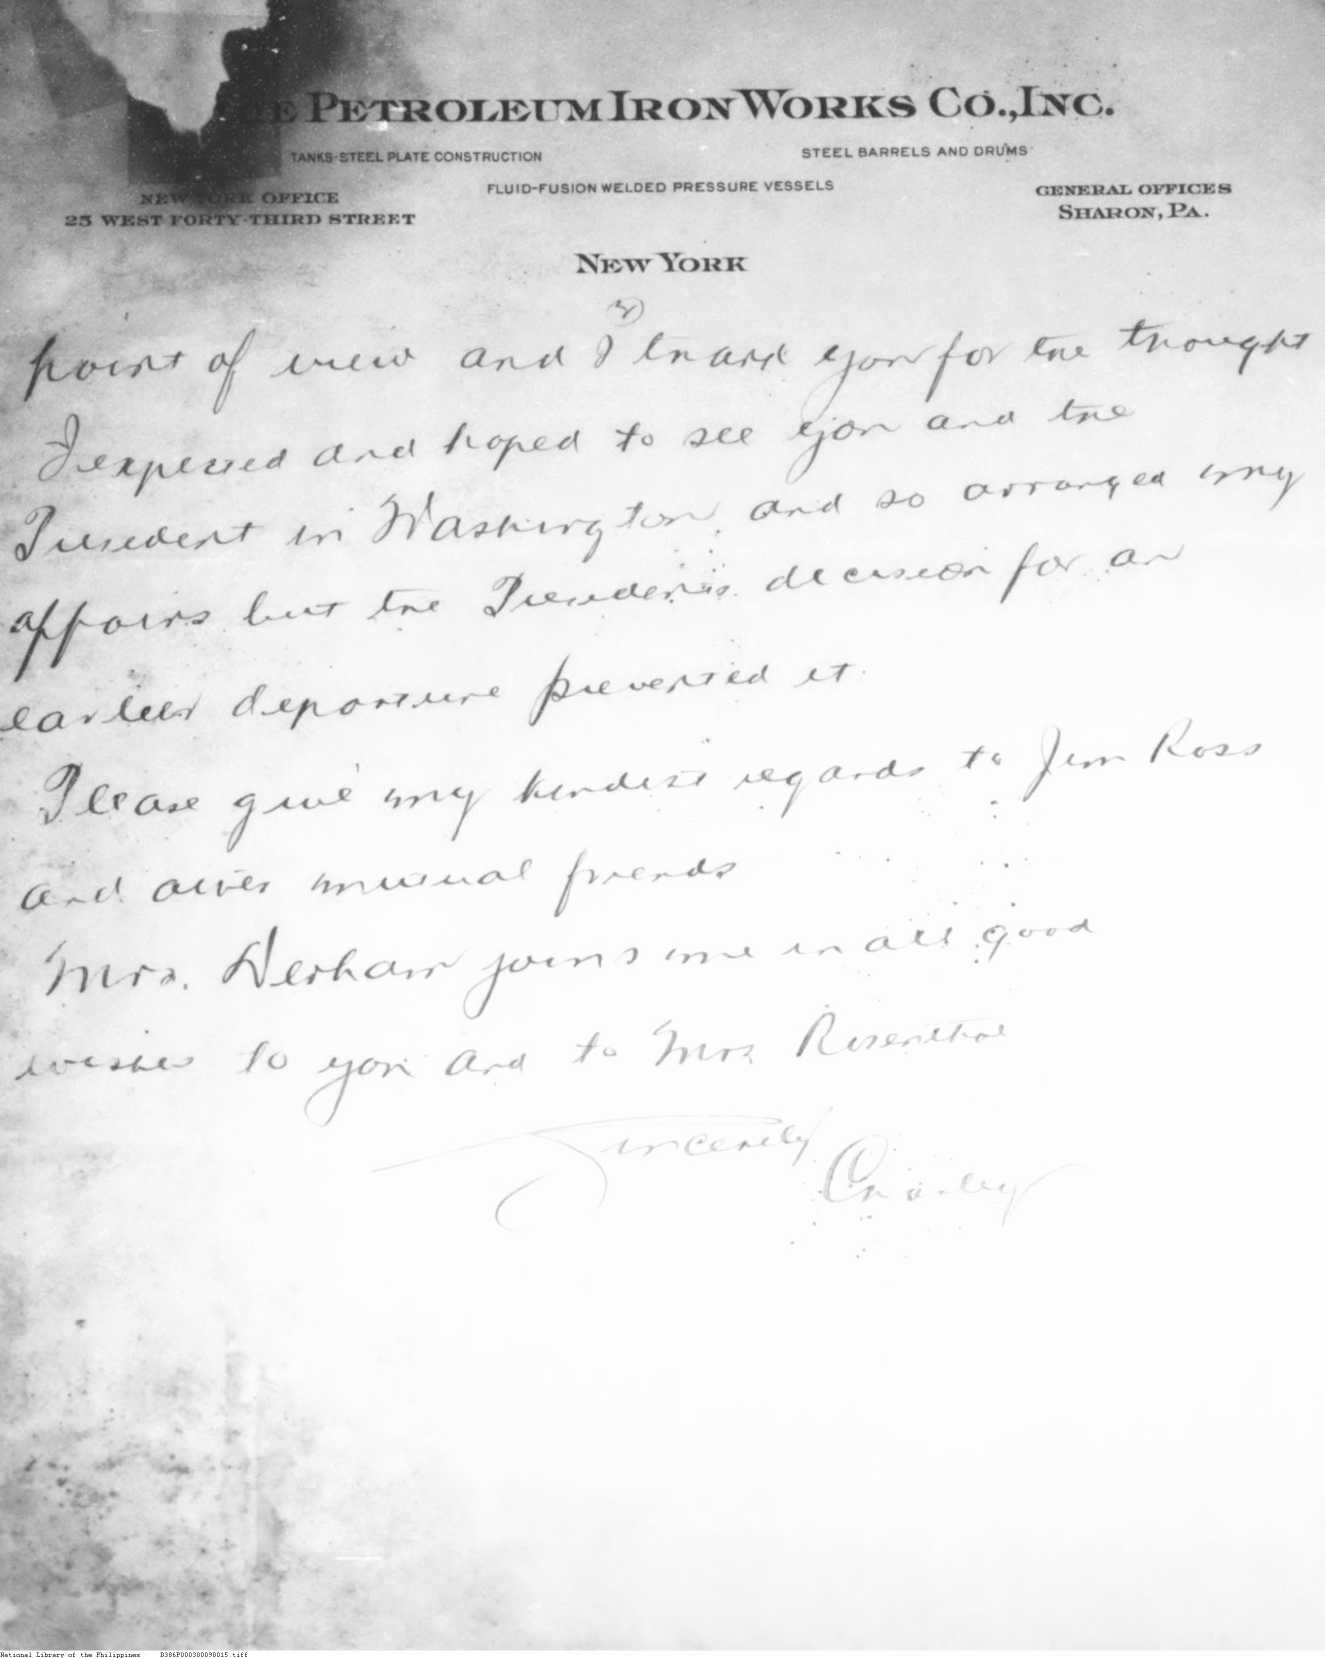 THE PETROLEUM IRON WORKS CO., INC.
TANKS-STEEL PLATE CONSTRUCTION STEEL BARRELS AND DRUMS
FLUID-FUSION WELDED PRESSURE VESSELS
NEW YORK OFFICE
25 WEST FORTY-THIRD STREET
GENERAL OFFICES
SHARON, PA.
NEW YORK
point of view and I thank you for the thought
I expected and hoped to see you and the
President in Washington and so arranged my
affairs but the President's decision for an
earlier departure prevented it.
Please give my kindest regards to Jim Ross
and other mutual friends
Mrs. Derham joins me in all good
wishes to you and to Mrs Rosenthal
Sincerely
Charley
National Library of the Philippines B386P000300098015.tiff